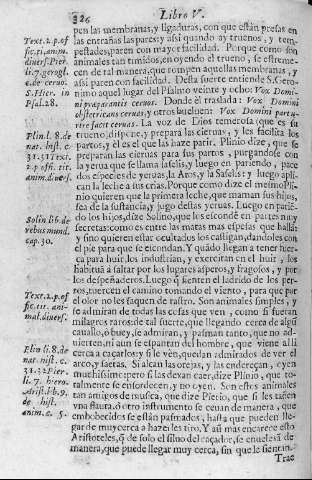 326
Libro V.
pen las membranas, y ligaduras, con que están presas en
las entrañas las pares: y assi quando ay truenos, y tem-
pestades, paren con mayor facilidad. Porque como son
animales tan timidos, en oyendo el trueno, se estreme-
cen de tal manera, que rompen aquellas membranas, y
assi paren con facilidad. Desta suerte entiende S. Gero-
nimo aquel lugar del Psalmo veinte y ocho: Vox Domi-
ni præparantis ceruos. Donde el traslada: Vox Domini
obstetricans ceruas, y otros buelben: Vox Domini partu-
rire facit ceruas. La voz de Dios temerosa (que es su
trueno) dispone, y prepara las cieruas, y les facilita los
partos, y él es el que las haze parir. Plinio dize, que se
preparan las cieruas para sus partos, purgandose con
la yerua que se llama saselis, y luego en pariendo, pace
dos especies de yeruas, la Aros, y la Saselis: y luego apli-
can la leche a sus crias. Porque como dize el mesmo Pli-
nio quieren que la primera leche, que maman sus hijos,
sea de la sustancia, y jugo destas yeruas. Luego en parié-
do los hijos, dize Solino, que los escondé en partes muy
secretas: como es entre las matas mas espesas que hallā:
y sino quieren estar ocultados los castigan, dandoles con
el pie para que se escondan. Y quádo llegan a tener fuer-
ça para huir, los industrian, y exercitan en el huir, y los
habituā a saltar por los lugares asperos, y fragosos, y por
los despeñaderos. Luego q̄ sienten el ladrido de los per-
ros, tuercen el camino tomando el viento, para que por
el olor no les saquen de rastro. Son animales simples, y
se admiran de todas las cosas que ven, como si fueran
milagros raros: de tal suerte, que llegando cerca de algū
cauallo, o buey, se admiran, y pasman tanto, que no ad-
uierten, ni aun se espantan del hombre, que viene alli
cerca a caçarlos: y si le vén, quedan admirados de ver el
arco, y saetas. Si alcan las orejas, y las enderecan, oyen
muchissimo: pero si las dexan caer, dize Plinio, que to-
talmente se ensordecen, y no oyen. Son estos animales
tan amigos de musica, que dize Pierio, que si les tañen
vna flauta, ó otro instrumento se ceuan de manera, que
embobecidos se están pasmados, hasta que pueden lle-
gar de muy cerca a hazerles tiro. Y aū mas encarece esto
Aristoteles, q̄ de solo el siluo del caçador, se enuelesā de
manera, que puede llegar muy cerca, sin que le sientan.
Trae
Text. 2. p. of
fic. ti. anim.
diuers. Pier.
li. 7. gerogl.
c. de ceruo
S. Hier. in
Psal. 28.
Plin. l. 8. de
nat. hist. c.
31. 31 Text.
2. p. offi. tit.
anim. diuers.
Solin lib. de
rebus mund.
cap. 30.
Text. 2. p. of
fic. tit. ani-
mal. diuers.
Plin li. 8. de
nat. hist. c.
31. 32 Pier.
li. 7. hiero.
Arist. lib. 9.
de hist.
anim. c. 5.